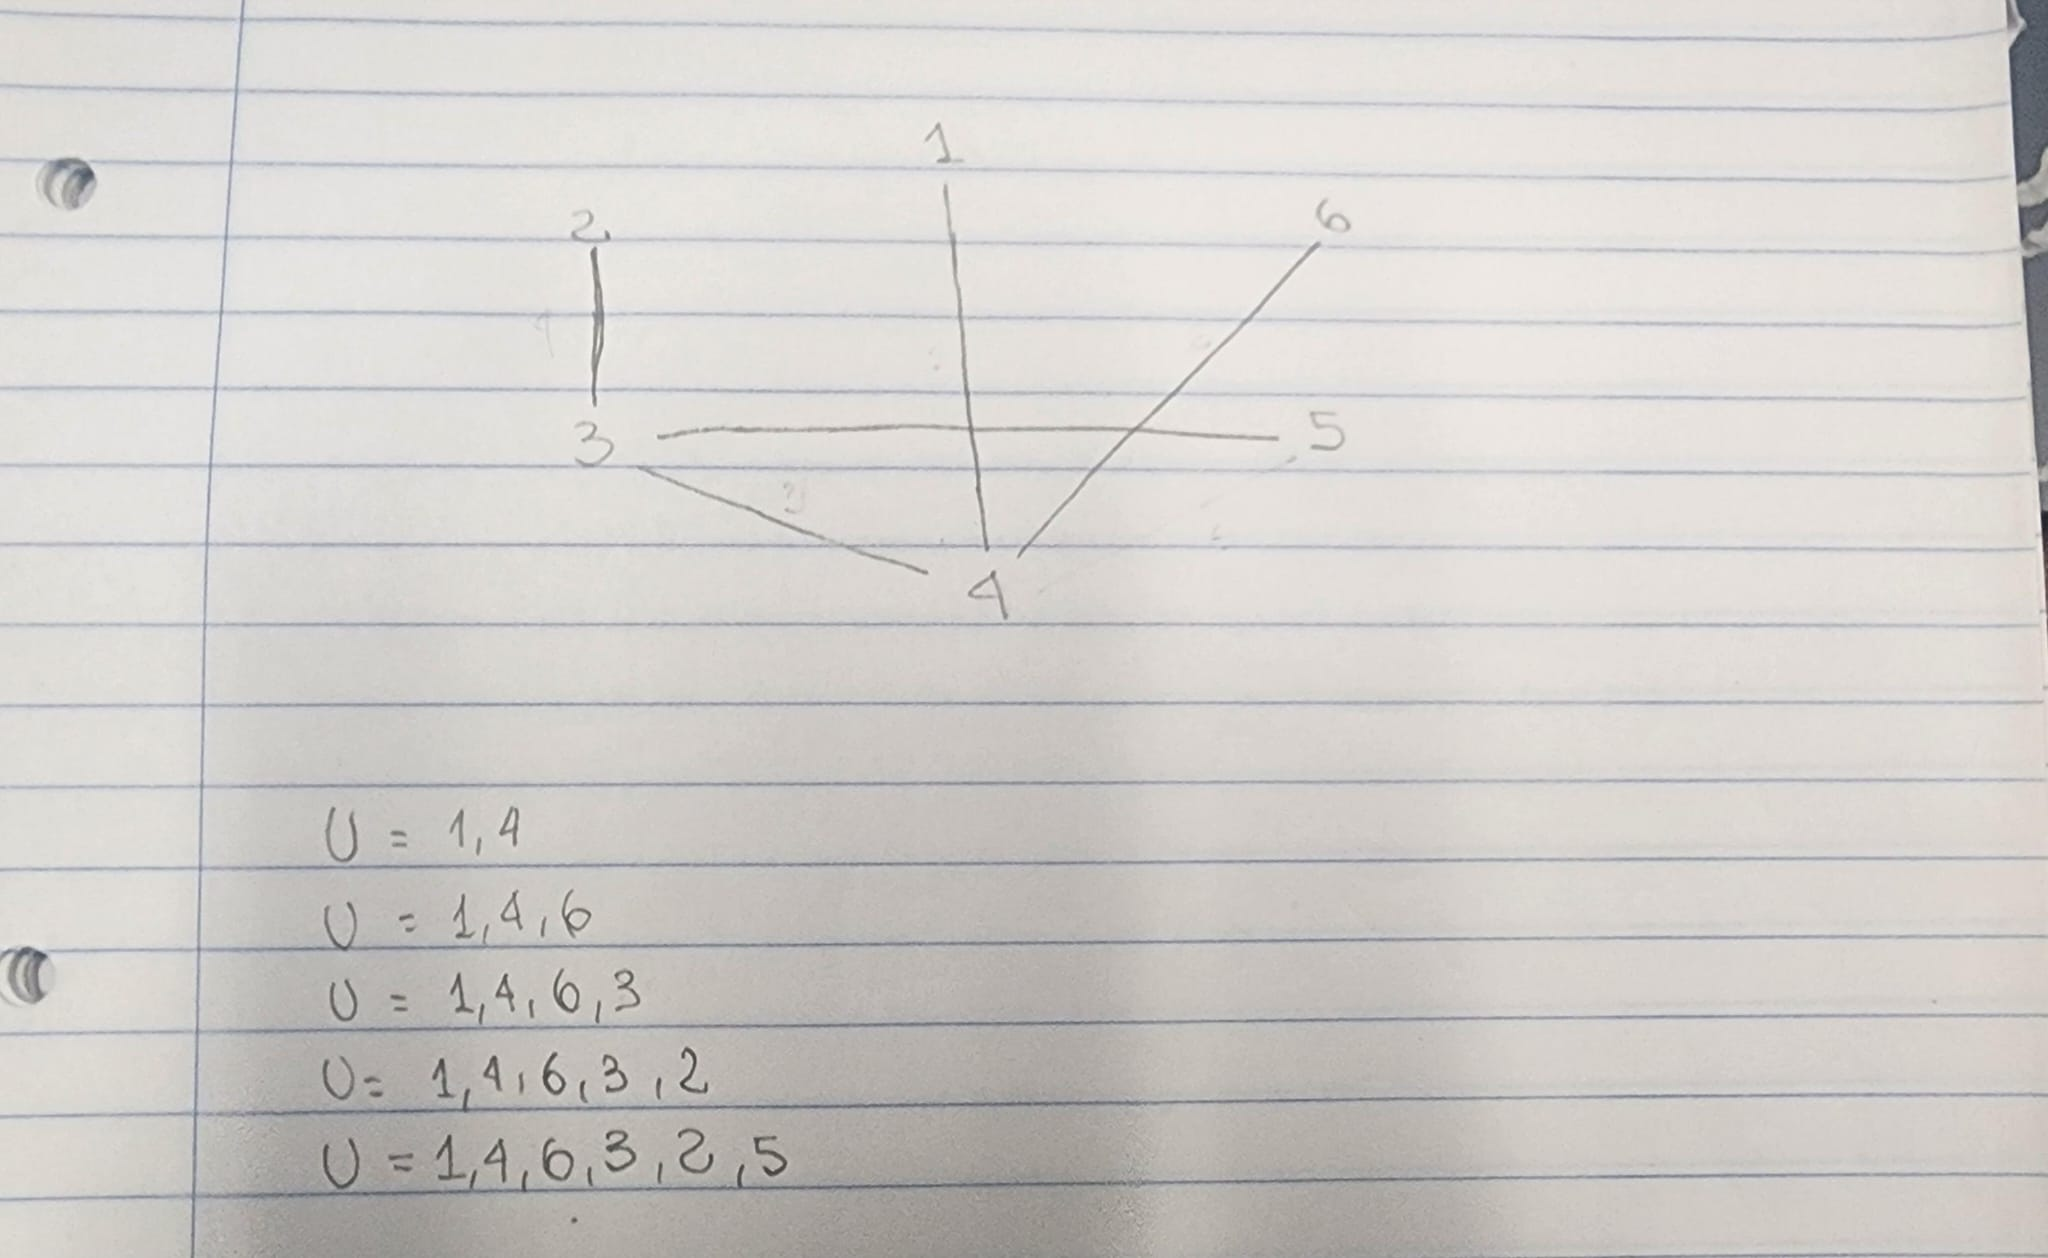 1
2
6
3
5
4
U = 1,4
U = 1,4,6
U = 1,4,6,3
U = 1,4,6,3,2
U = 1,4,6,3,2,5